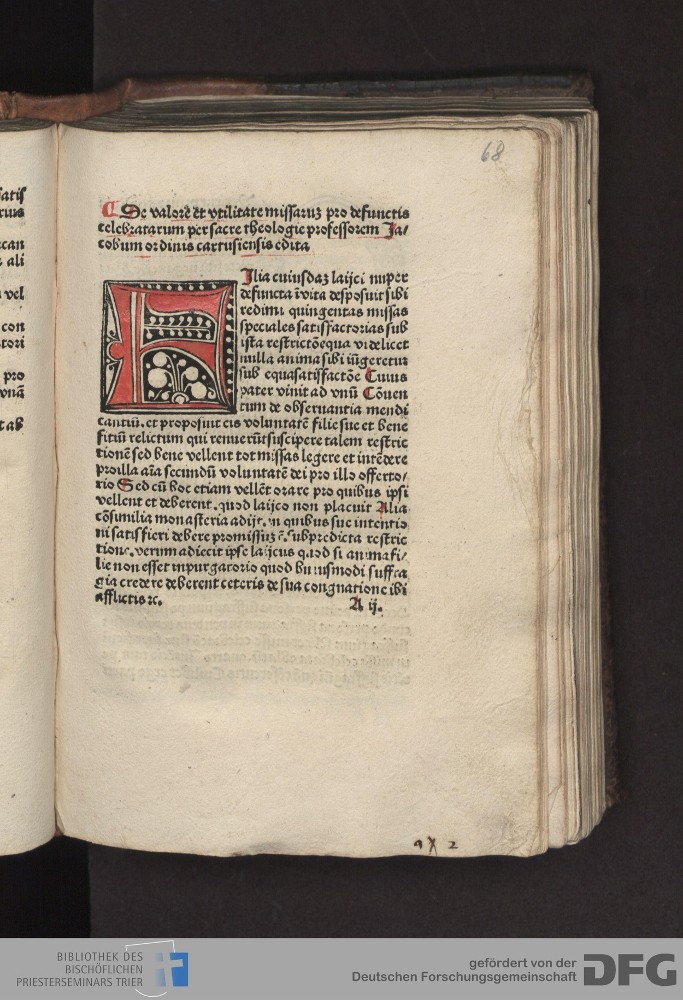 68
satis
rius
rcan
ali
vel
con
tori
pro
vnā
tab
De valore et vtilitate missaruꝫ pro defunctis
celebratarum per sacre theologie professorem Ja/
cobum ordinis cartusiensis edita
Filia cuiusdaꝫ laijci nuper
defuncta ī vita desposuit sibi
redimi quingentas missas
speciales satisfactorias sub
ista restrictōe qua videlicet
nulla anima sibi iūgeretur
sub equa satisfactōe Cuius
pater viuit ad vnū Cōuen
tum de obseruantia mendi
cantiū. et proposuit eis voluntatē filie sue et bene
fitiū relictum qui renuerūt suscipere talem restric
tionē sed bene vellent tot missas legere et intēdere
pro illa aīa secundū voluntatē dei pro illo offerto/
rio Sed cū hoc etiam vellēt orare pro quibus ipsi
vellent et deberent. quod laijco non placuit Alia
cōsimilia monasteria adijt. in quibus sue intentio
ni satisfieri debere promissuꝫ ē. sub predicta restric
tione. verum adiecit ipse laijcus quod si anima fi/
lie non esset in purgatorio quod huiusmodi suffra
gia credere deberent ceteris de sua congnatione ibi
afflictis ꝛc.
A ij.
a 2
BIBLIOTHEK DES
BISCHÖFLICHEN
PRIESTERSEMINARS TRIER
gefördert von der
Deutschen Forschungsgemeinschaft
DFG